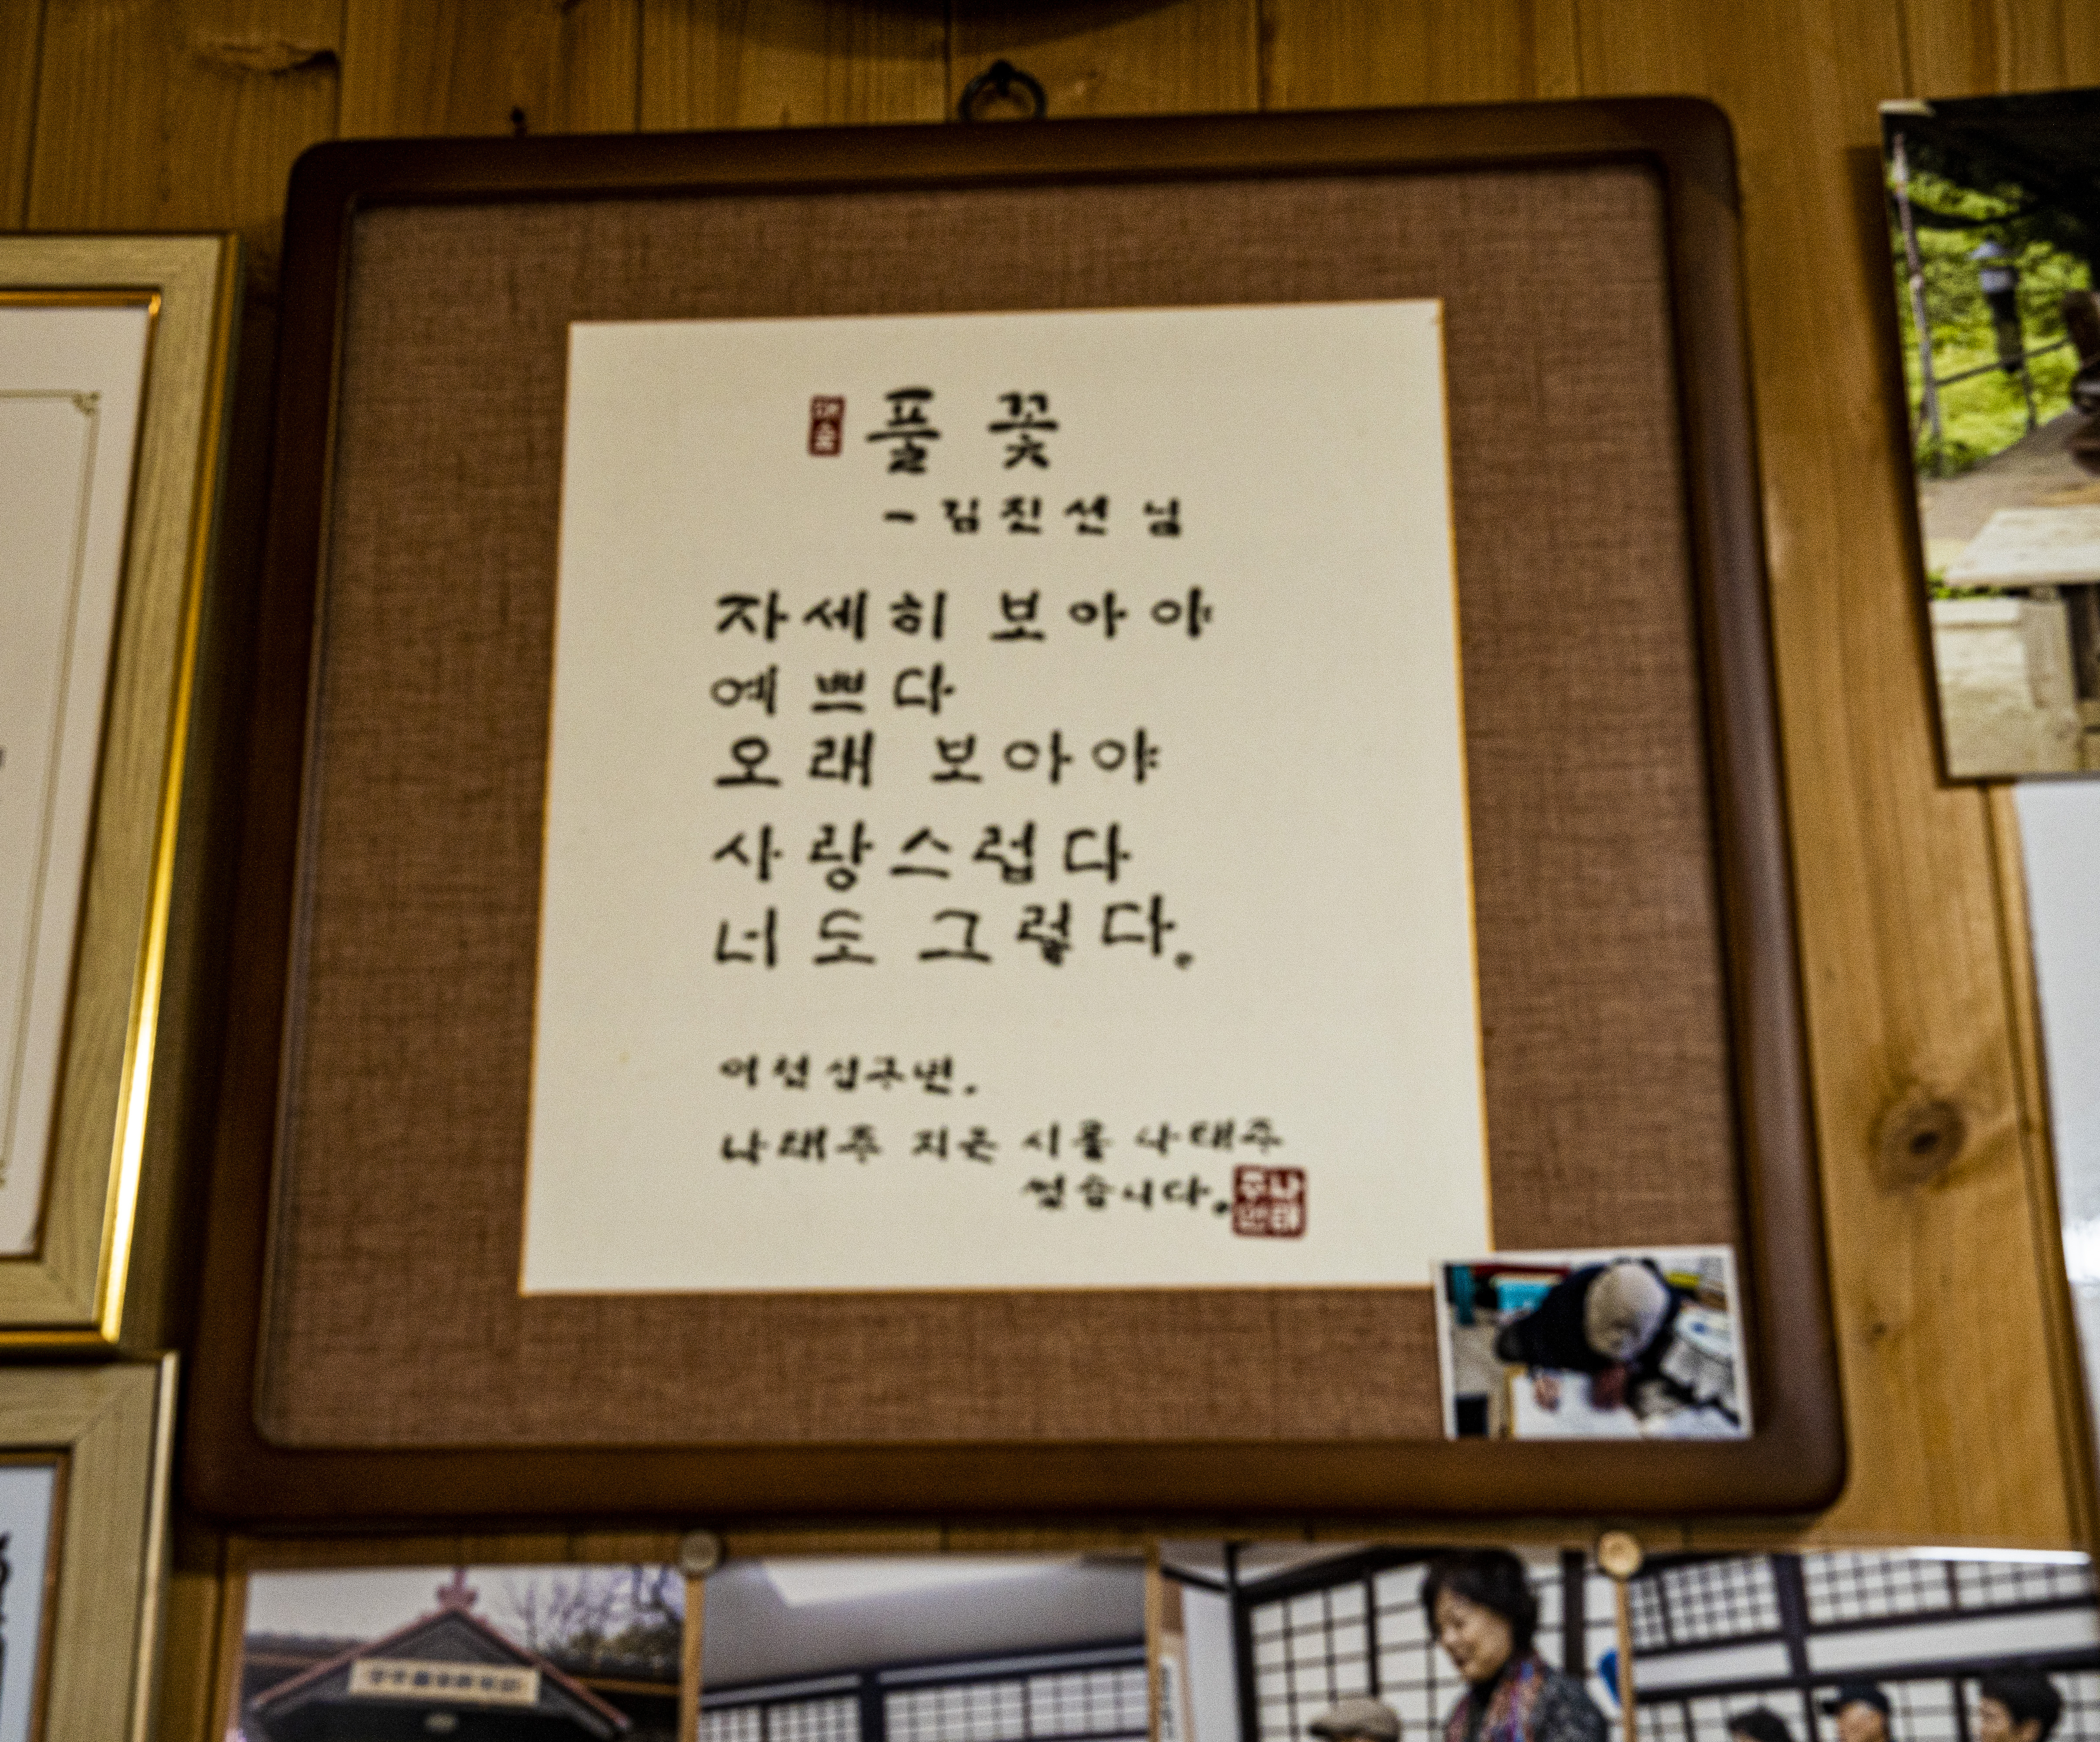 풀꽃
- 김진선 님
자세히 보아야
예쁘다
오래 보아야
사랑스럽다
너도 그렇다.
나태주 지은 시를 나태주
썼습니다.